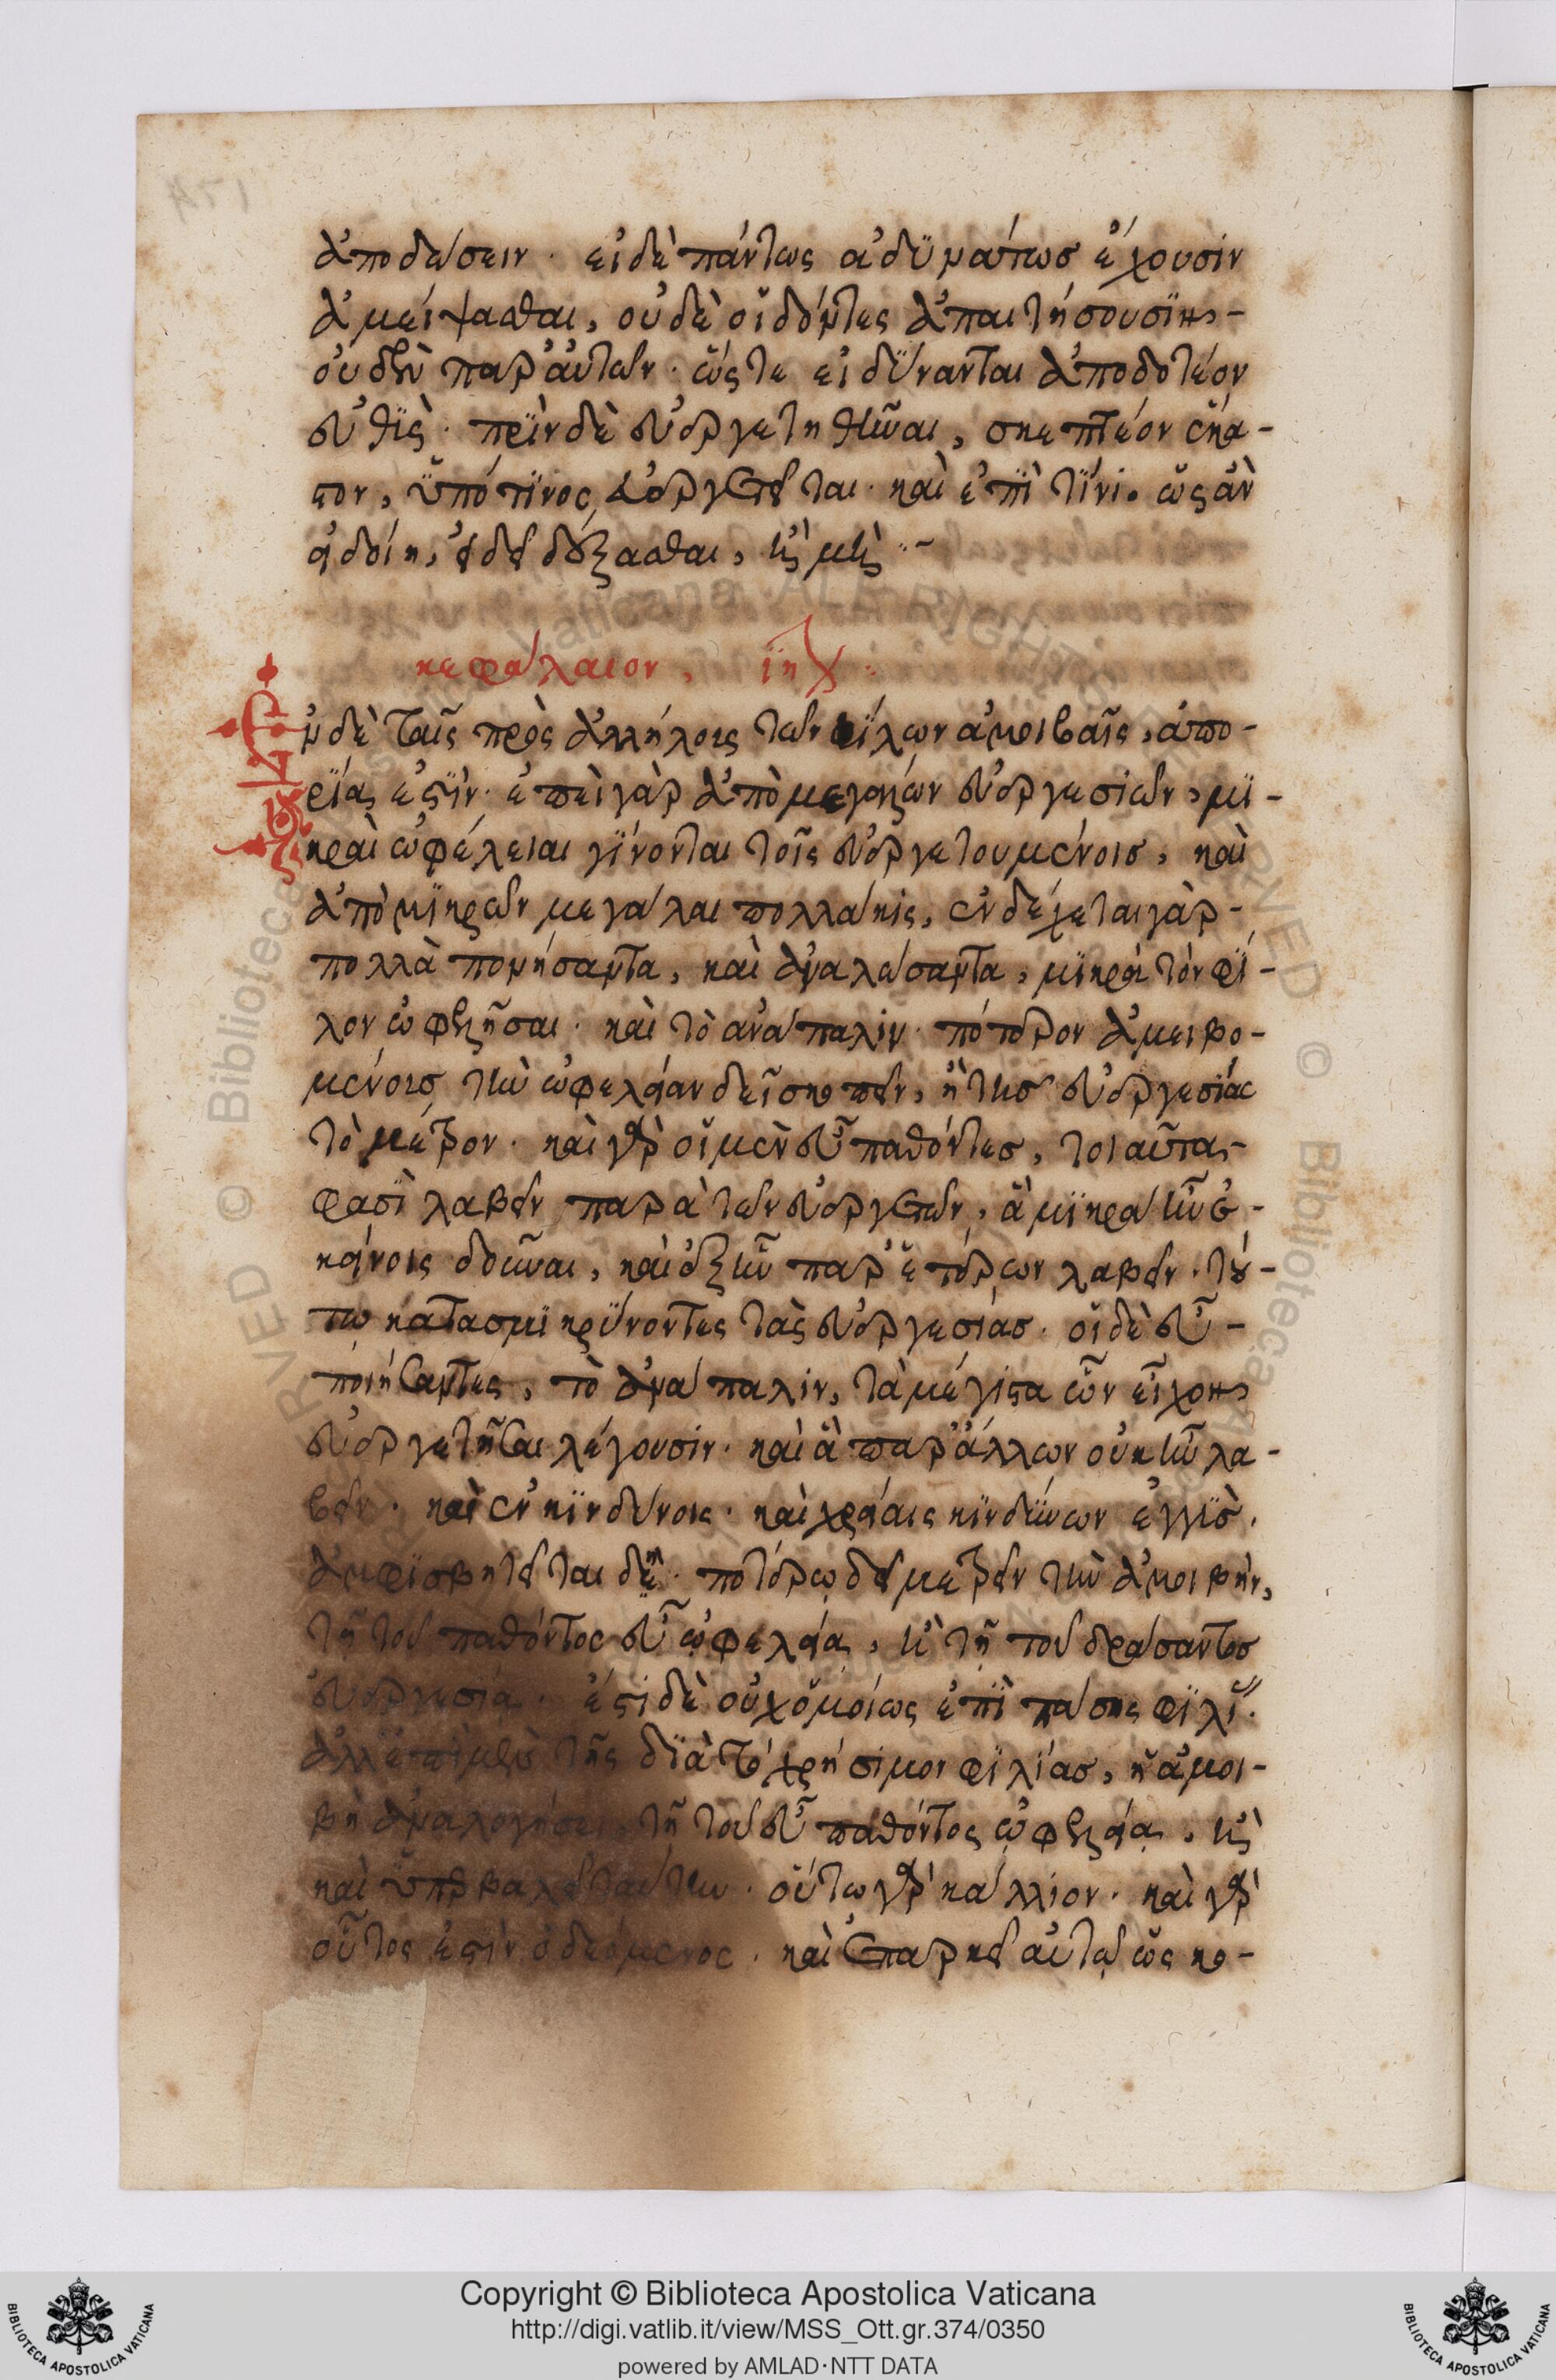 ἀποδώσειν· εἰ δὲ πάντως ἀδυνάτως ἔχουσιν
ἀμείψασθαι, οὐδὲ οἱ δόντες ἀπαιτήσουσιν
οὐδὲν παρ' αὐτῶν· ὥστε εἰ δύνανται ἀποδοτέον
εὐθὺς· πρὶν δὲ εὐεργετηθῆναι, σκεπτέον ἕκα-
στον, ὑπό τινος εὐεργετεῖται· καὶ ἐπὶ τίνι. ὡς ἂν
εἰδείη, εἰ δεῖ δέξασθαι, ἢ μή:-
κεφάλαιον, ιη
Ἐν δὲ ταῖς πρὸς ἀλλήλοις τῶν φίλων ἀμοιβαῖς, ἀπο-
ρία ἐστὶν· ἐπεὶ γὰρ ἀπὸ μεγάλων εὐεργεσιῶν, μι-
κραὶ ὠφέλειαι γίνονται τοῖς εὐεργετουμένοις, καὶ
ἀπὸ μικρῶν μεγάλαι πολλάκις, ἐνδέχεται γὰρ
πολλὰ πονήσαντα, καὶ ἀναλώσαντα, μικρὰ τὸν φί-
λον ὠφελῆσαι· καὶ τὸ ἀνάπαλιν· πότερον ἀμειβο-
μένοις τὴν ὠφέλειαν δεῖ σκοπεῖν, ἢ τῆς εὐεργεσίας
τὸ μέτρον· καὶ γὰρ οἱ μὲν εὖ παθόντες, τοιαῦτα
φασὶ λαβεῖν παρὰ τῶν εὐεργετῶν, ἃ μικρὰ ἦν ἐ-
κείνοις δοῦναι, καὶ ἐξῆν παρ' ἑτέρων λαβεῖν· τού-
τω κατασμικρύνοντες τὰς εὐεργεσίας· οἱ δὲ εὖ
ποιήσαντες, τὸ ἀνάπαλιν, τὰ μέγιστα ὧν εἶχον
εὐεργετῆσαι λέγουσιν· καὶ ἃ παρ' ἄλλων οὐκ ἦν λα-
βεῖν· καὶ ἐν κινδύνοις· καὶ χρείαις κινδύνων ἐγγὺς.
ἀμφισβητεῖται δὴ· ποτέρῳ δεῖ μετρεῖν τὴν ἀμοιβήν,
τῇ τοῦ παθόντος εὖ ὠφελείᾳ, ἢ τῇ τοῦ δράσαντος
εὐεργεσίᾳ· ἔστι δὲ οὐχ ὁμοίως ἐπὶ πάσης φιλί
ἀλλ' ἐπὶ μὲν τῆς διὰ τὸ χρήσιμον φιλίας, ἡ ἀμοι-
βὴ ἀναλογήσει, τῇ τοῦ εὖ παθόντος ὠφελείᾳ, ἢ
καὶ ὑπερβαλεῖ ταύτην· οὕτω γὰρ κάλλιον· καὶ γὰρ
οὗτος ἐστὶν ὁ δεόμενος· καὶ ἐπαρκεῖ αὐτῷ ὡς κο-
Copyright © Biblioteca Apostolica Vaticana
http://digi.vatlib.it/view/MSS_Ott.gr.374/0350
powered by AMLAD·NTT DATA